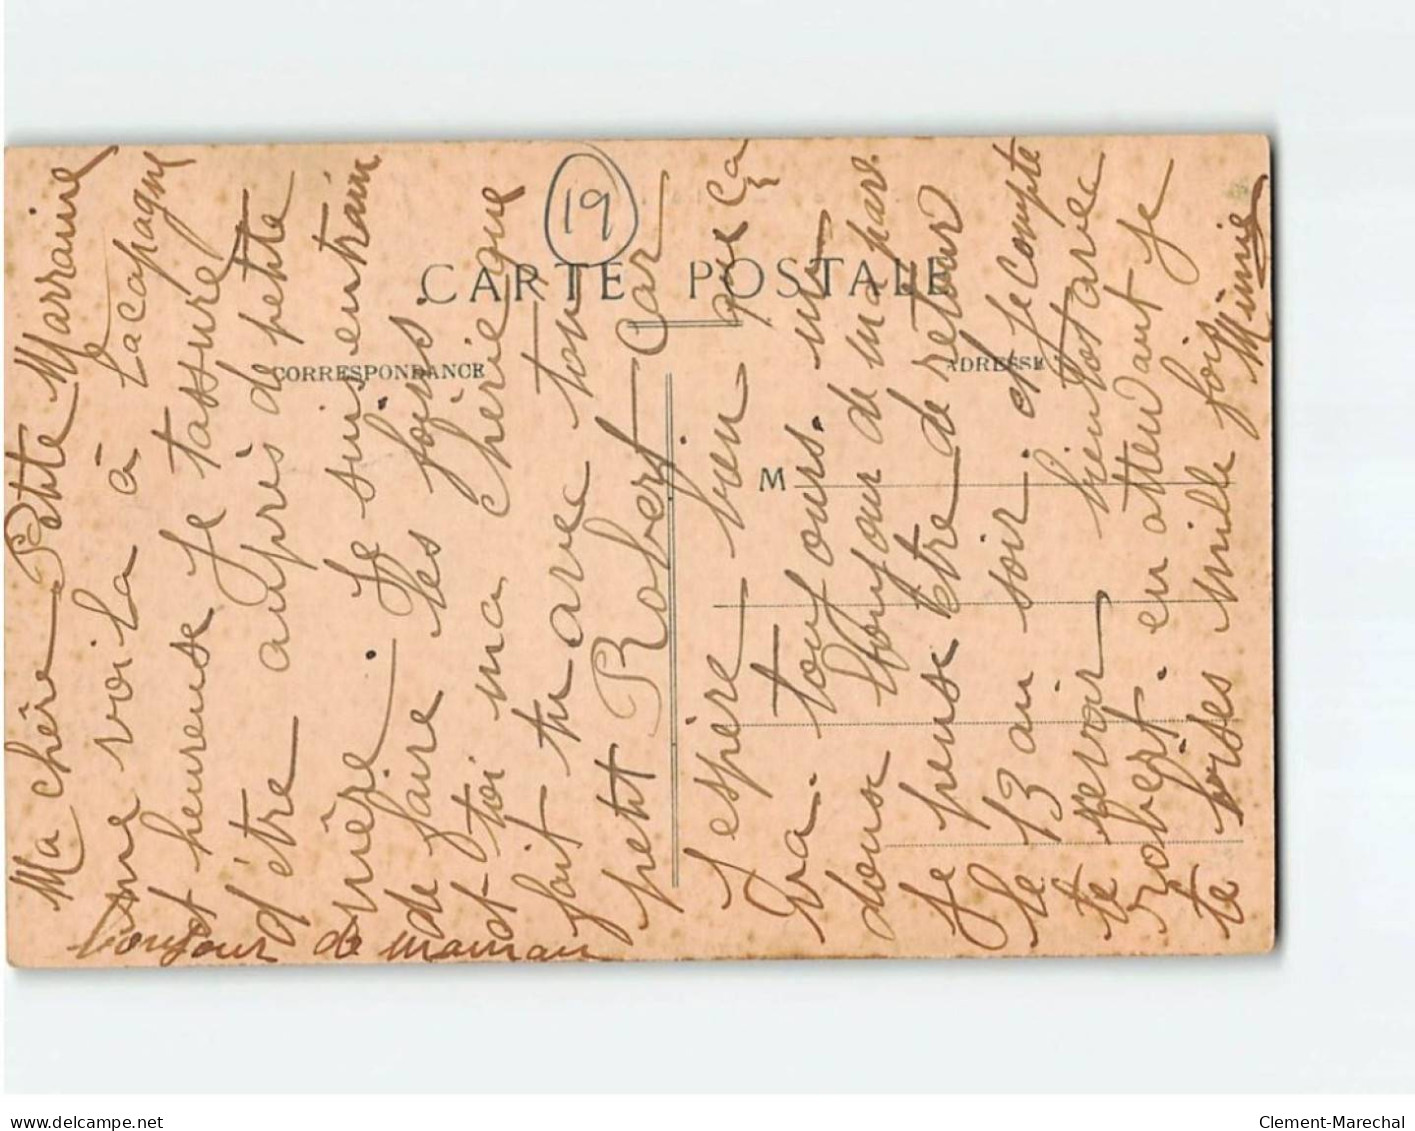 Ma chère Petite Marraine
Me voila à Lacapagne
et heureuse Je t'assure
d'être auprès de petite
mère. Je suis entrain
de faire les foins.
et toi ma chérie que
fait tu avec ton
petit Robert. Car
J espère bien que ça
va. tout ours. un
doux bonjour de ma part.
Je pense être de retour
le 13 au soir. et Je compte
te revoir bientot avec
Robert. en attendant Je
te bises mille fois
Mimie
bonjour de maman
19
CARTE POSTALE
CORRESPONDANCE
ADRESSE
M
Clement-Marechal